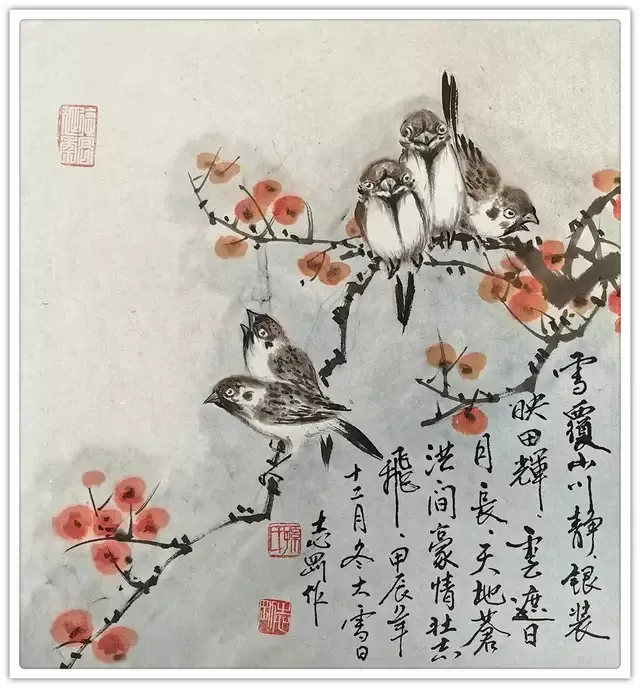 雪覆山川静、银装
映田輝、雲遮日
月長、天地蒼
洪间豪情壮志
飛、甲辰年
十二月冬大雪日
志罡作